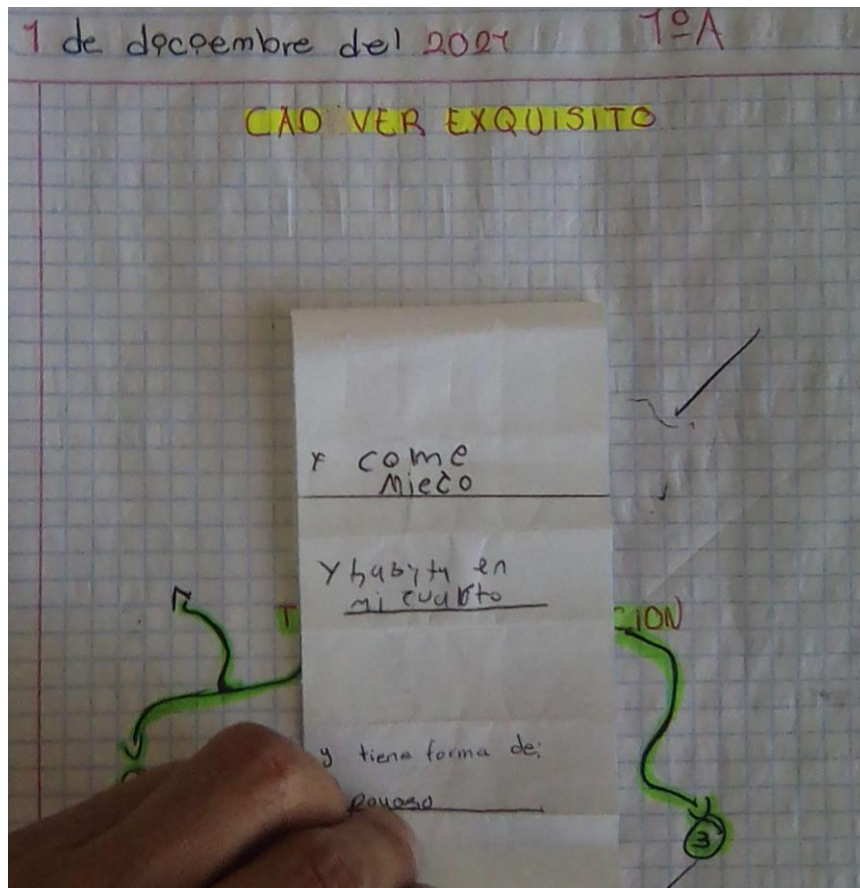 1 de dociembre del 2021 1ºA
CAD VER EXQUISITO
Y come
Mieдo
Y habyta en
mi cuarto
T CION
y tiene forma de:
payaso
3